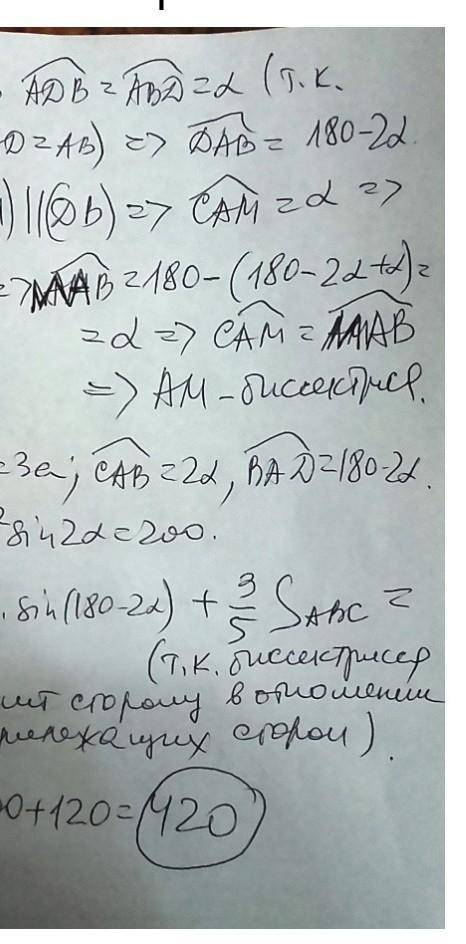 ADB = ABD = α (т.к.
D = AB) => DAB = 180-2α.
) || (DB) => CAM = α =>
=> MAB = 180-(180-2α+α) =
= α => CAM = MAB
=> AM - биссектриса.
=3a; CAB = 2α, BAD = 180-2α.
²sin2α = 200.
. sin(180-2α) + 3/5 S_ABC =
(т.к. биссектриса
ит сторону в отношении
лежащих сторон).
0+120 = 420